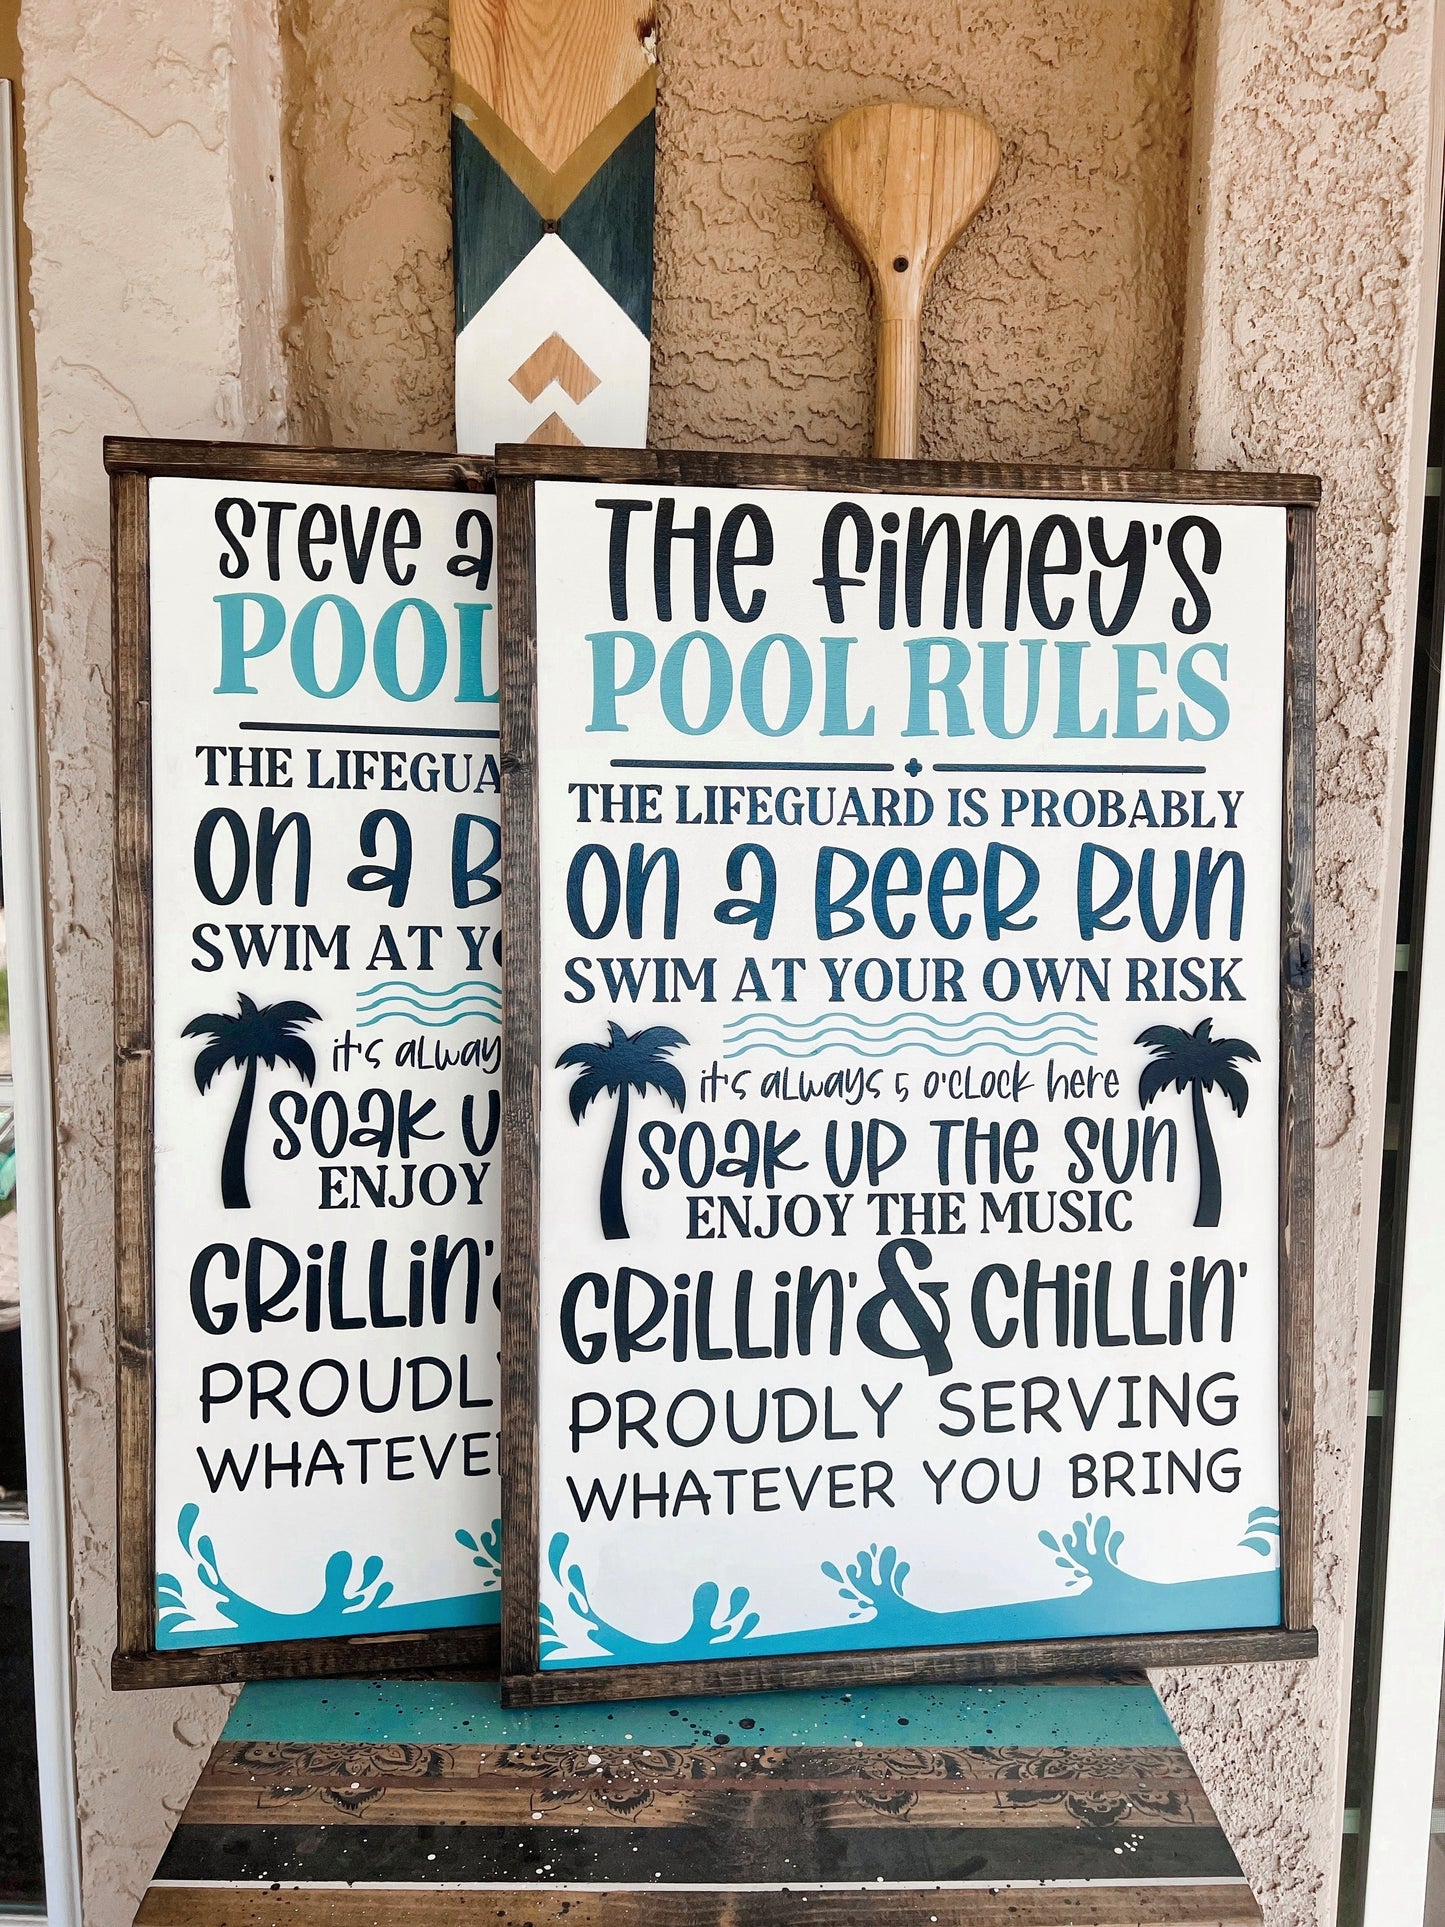 STEVE
POOL
THE
ON A
SWIM AT
it's
SOAK
ENJOY
GRILLIN'
THE FINNEY'S
POOL RULES
THE LIFEGUARD IS PROBABLY
ON A BEER RUN
SWIM AT YOUR OWN RISK
it's always 5 o'clock here
SOAK UP THE SUN
ENJOY THE MUSIC
GRILLIN' & CHILLIN'
PROUDLY SERVING
WHATEVER YOU BRING